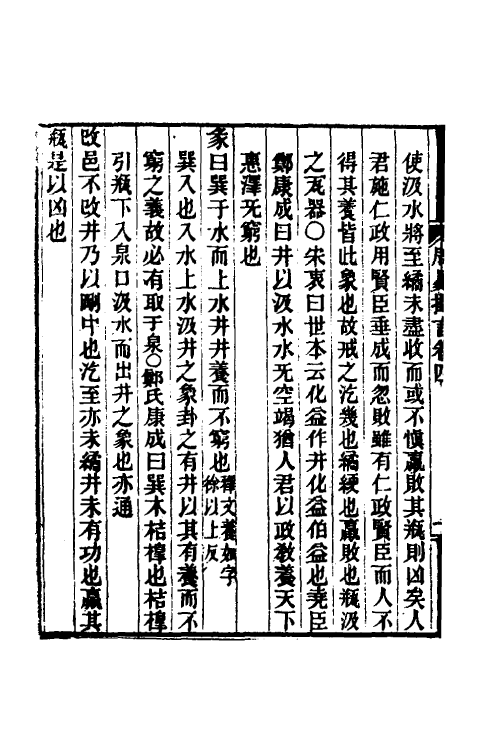 使汲水將至繘未盡收而或不慎羸敗其瓶則凶矣人
君施仁政用賢臣垂成而忽敗雖有仁政賢臣而人不
得其養皆此象也故戒之汔幾也繘綆也羸敗也瓶汲
之瓦器○宋衷曰世本云化益作井化益伯益也堯臣
鄭康成曰井以汲水水无空竭猶人君以政敎養天下
惠澤无窮也
彖曰巽乎水而上水井井養而不窮也釋文養如字徐以上反
巽入也入水上水汲井之象卦之有井以其有養而不
窮之義故必有取于泉○鄭氏康成曰巽木桔橰也桔橰
引瓶下入泉口汲水而出井之象也亦通
改邑不改井乃以剛中也汔至亦未繘井未有功也羸其
瓶是以凶也